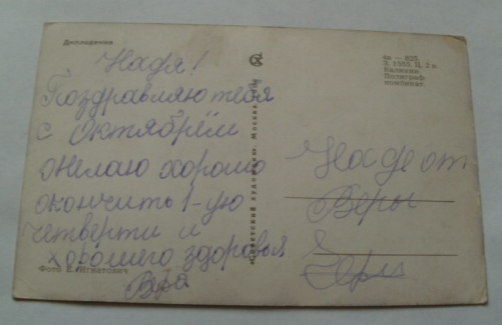 Дипладения
Надя!
Поздравляю тебя
с Октябрём
желаю хорошо
окончить 1-ую
четверти и
хорошего здоровья
Вера
Фото Е. Игнатович
Советский художник Москва
4а — 825.
З. 1585. Ц. 2 к.
Калинин.
Полиграф-
комбинат.
Наде от
Веры